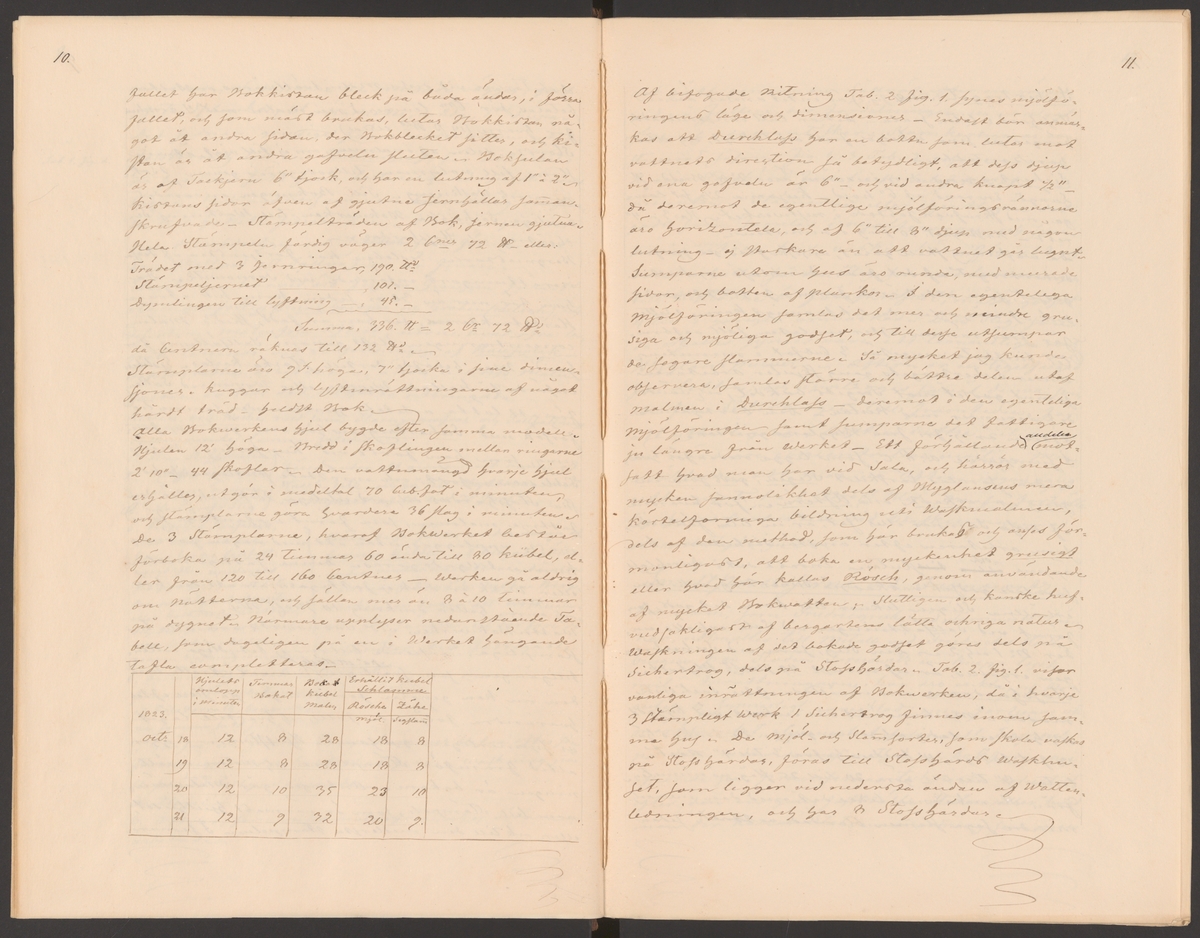 10.
fallet har Bokkistan bleck på båda ändar, i förra
fallet, och som mäst brukas, lutar Bokkistan nå-
got åt andra sidan, der Bokblecket sitter, och ki-
stan är åt andra gafveln sluten. Boksulan
är af Tackjern 6" tjock, och har en lutning af 1" à 2"
kistans sidor äfven af gjutne jernhällar samman-
skrufvade – Stämpelträden af Bok, jernen gjutna.
Hela Stämpeln färdig väger 2 Cner 72 ℔ eller:
Trädet med 3 jernringar, 190. ℔
Stämpeljernet 101. –
Dymlingen till lyftning – 45. –
Summa, 336. ℔ = 2 Cr 72 ℔
då Centnern räknas till 132 ℔.
Stämplarne äro 9 f. höga, 7" tjocka i fine dimen-
sioner. Kuggar och lyftinrättningarne af något
hårdt träd – heldst Bok.
Alla Bokwerkens hjul bygde efter samma modell.
Hjulen 12' höga – Bredd i skoflingen mellan ringarne
2' 10" – 44 skoflar – Den vattumängd hvarje hjul
erhåller, utgör i medeltal 70 Cub. fot i minuten,
och stämplarne göra hvardera 36 slag i minuten.
De 3 Stämplarne, hvaraf Bokwerket består
förboka på 24 timmar 60 ända till 80 kübel, el-
ler från 120 till 160 Centner – Werken gå aldrig
om nätterna, och sällan mer än 8 à 10 timmar
på dygnet. Närmare upplyser nedanstående Ta-
bell, som dageligen på en i Werket hängande
tafla completteras. –
Hjulets omlopp i minuten Timmar Bokat Bokat Kubel Malm Erhållit Kubel Schlamme
Röscha mjöl Zähe
1823.
Oct. 18 12 8 28 18 8
19 12 8 28 18 8
20 12 10 35 23 10
21 12 9 32 20 9.
11.
Af bifogade Ritning Tab. 2 fig. 1. synes mjölfö-
ringens läge och dimensioner – Endast bör anmär-
kas att Durchlass har en botten som lutar mot
vattnets direction så betydligt, att dess djup
vid ena gafveln är 6" – och vid andra knapt ½" –
då deremot de egentlige mjölföringsrännorne
äro horizontela, och af 6" till 8" djup med någon
lutning – ej starkare än att vattnet går lugnt –
Sumparne utom hus äro runda, med murade
sidor, och botten af plankor. I den egenteliga
Mjölföringen samlas det mer och mindre gru-
siga och mjöliga godset, och till desse utsumpar
de segare slammerne. Så mycket jag kunde
observera, samlas större och bättre delen utaf
malmen i Durchlass – deremot i den egenteliga
Mjölföringen samt sumparne det fattigare
ju längre från Werket – Ett förhållande alldeles mot-
satt hvad man har vid Sala, och härrör med
mycken sannolikhet dels af Blyglansens mera
körtelformiga bildning uti Waskmalmen,
dels af den method, som här brukas och anses för-
månligast, att boka en myckenhet grusigt
eller hvad här kallas Rösch, genom användande
af mycket Bokvatten. Slutligen och kanske huf-
vudsakligast af bergartens lätta ochriga natur.
Waskningen af det bokade godset göres dels på
Sichertrog, dels på Stosshärdar. Tab. 2. fig. 1. visar
vanliga inrättningen af Bokwerken, då i hvarje
3 Stämpligt Werk 1 Sichertrog finnes inom sam-
ma hus. De Mjöl- och Slamsorter, som skola vaskas
på Stosshärdar, föras till Stosshärds Waskhu-
set, som ligger vid nedersta ändan af Watten-
ledningen, och har 8 Stosshärdar.